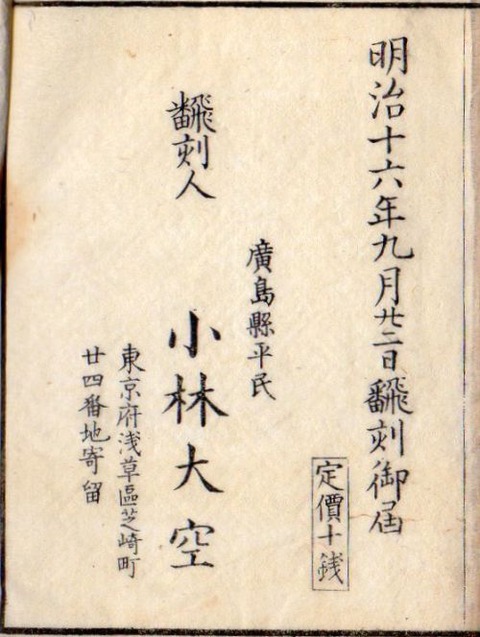 明治十六年九月廿二日飜刻御届
定價十銭
廣島縣平民
飜刻人
小林大空
東京府浅草區芝崎町
廿四番地寄留